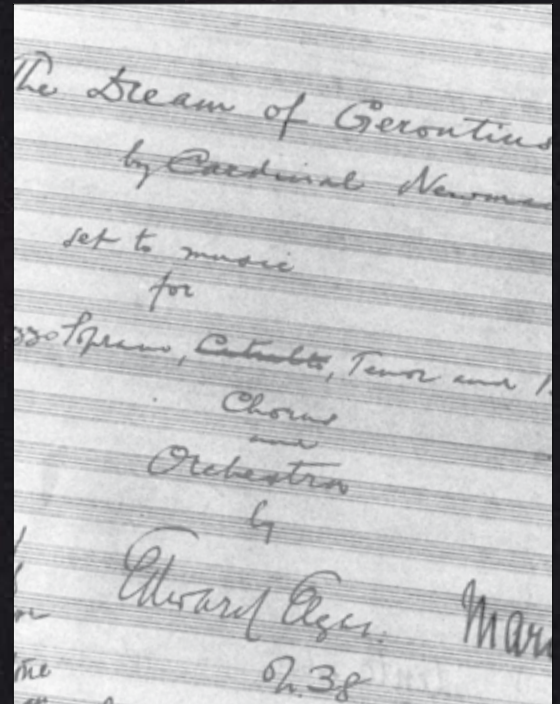 The Dream of Gerontius
by Cardinal Newma
set to music
for
zzo Soprano, Contralto, Tenor and
Chorus
and
Orchestra
by
Edward Elgar.
Mar
Op. 38